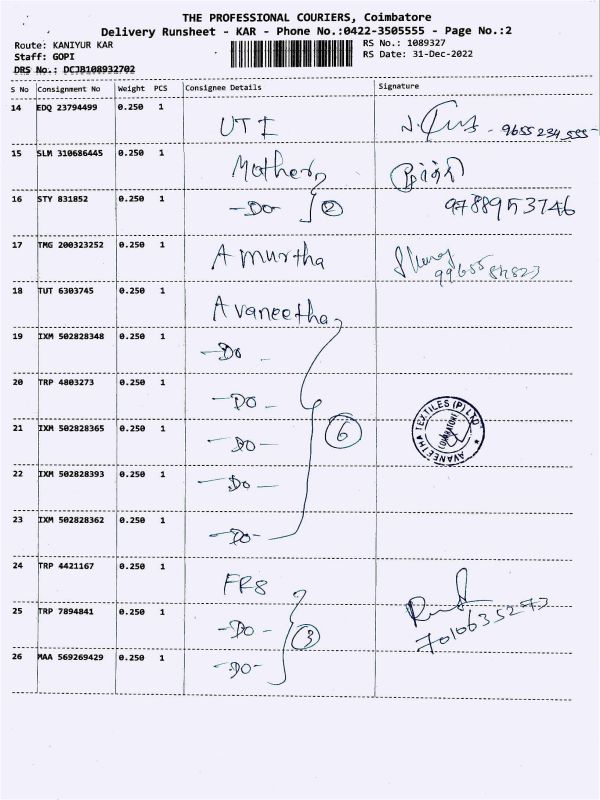 THE PROFESSIONAL COURIERS, Coimbatore
Delivery Runsheet - KAR - Phone No.:0422-3505555 - Page No.:2
Route: KANIYUR KAR
RS No.: 1089327
Staff: GOPI
RS Date: 31-Dec-2022
DRS No.: DCJB108932702
S No Consignment No Weight PCS Consignee Details Signature
14 EDQ 23794499 0.250 1 UTI - 9655234555-
15 SLM 310686445 0.250 1 Mothers
16 STY 831852 0.250 1 -Do- 2 9788953746
17 TMG 200323252 0.250 1 Amurtha
18 TUT 6303745 0.250 1 Avaneetha
19 IXM 502828348 0.250 1 -Do -
20 TRP 4803273 0.250 1 -Do -
21 IXM 502828365 0.250 1 -Do- 6 AVANEETHA TEXTILES (P) LTD. COIMBATORE
22 IXM 502828393 0.250 1 -Do -
23 IXM 502828362 0.250 1 -Do-
24 TRP 4421167 0.250 1 FR8
25 TRP 7894841 0.250 1 -Do - 3 7010635273
26 MAA 569269429 0.250 1 -Do-